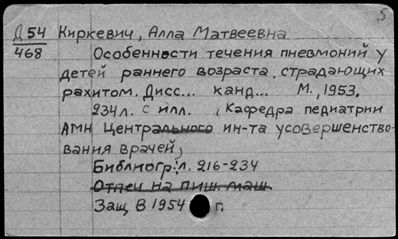 5
Д 54 Киркевич, Алла Матвеевна
468 Особенности течения пневмоний у
детей раннего возраста, страдающих
рахитом. Дисс... канд... М., 1953.
234л. с илл. (Кафедра педиатрии
АМН Центрального ин-та усовершенство-
вания врачей)
Библиогр: л. 216-234
Отпеч на пиш. маш.
Защ в 1954 г.